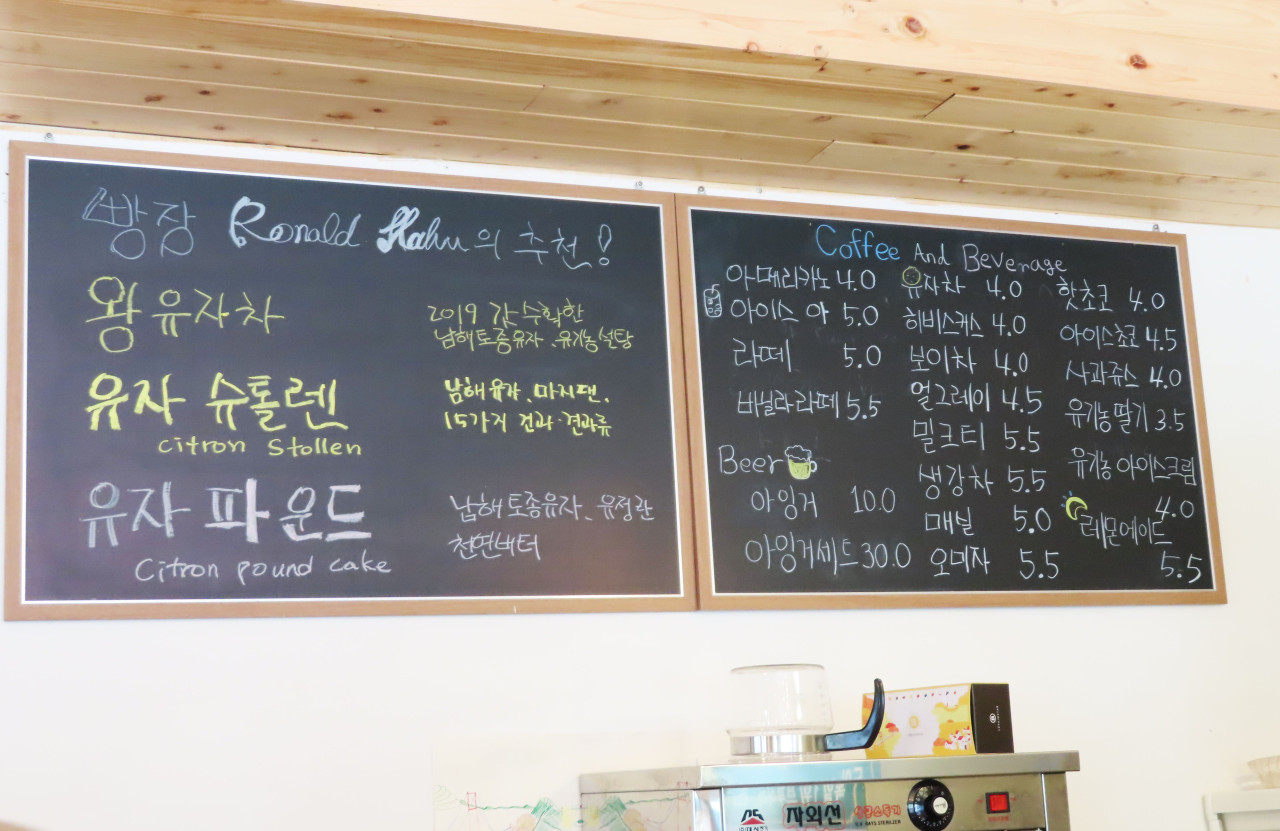 빵장 Ronald Hahn의 추천!
왕 유자차
2019 갓 수확한
남해토종유자, 유기농설탕
유자 슈톨렌
citron stollen
남해유자, 마지팬,
15가지 건과·견과류
유자 파운드
citron pound cake
남해토종유자, 유정란
천연버터
Coffee And Beverage
아메리카노 4.0
아이스 아 5.0
라떼 5.0
바닐라라떼 5.5
Beer
아잉거 10.0
아잉거세트 30.0
유자차 4.0
히비스커스 4.0
보이차 4.0
얼그레이 4.5
밀크티 5.5
생강차 5.5
매실 5.0
오미자 5.5
핫초코 4.0
아이스초코 4.5
사과쥬스 4.0
유기농딸기 3.5
유기농 아이스크림
4.0
레몬에이드
5.5
자외선